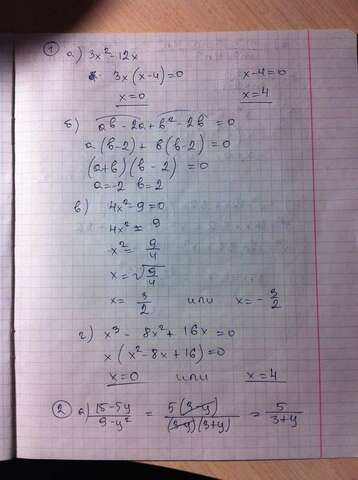 1 а) 3x² - 12x
3x (x-4) = 0 x-4=0
x=0 x=4
б) ab - 2a + b² - 2b = 0
a (b-2) + b(b-2) = 0
(a+b) (b-2) = 0
a=-2 b=2
в) 4x² - 9 = 0
4x² = 9
x² = 9/4
x = √9/4
x = 3/2 или x = -3/2
г) x³ - 8x² + 16x = 0
x (x² - 8x + 16) = 0
x=0 или x=4
2 а) 15-5y/9-y² = 5(3-y)/(3-y)(3+y) = 5/3+y